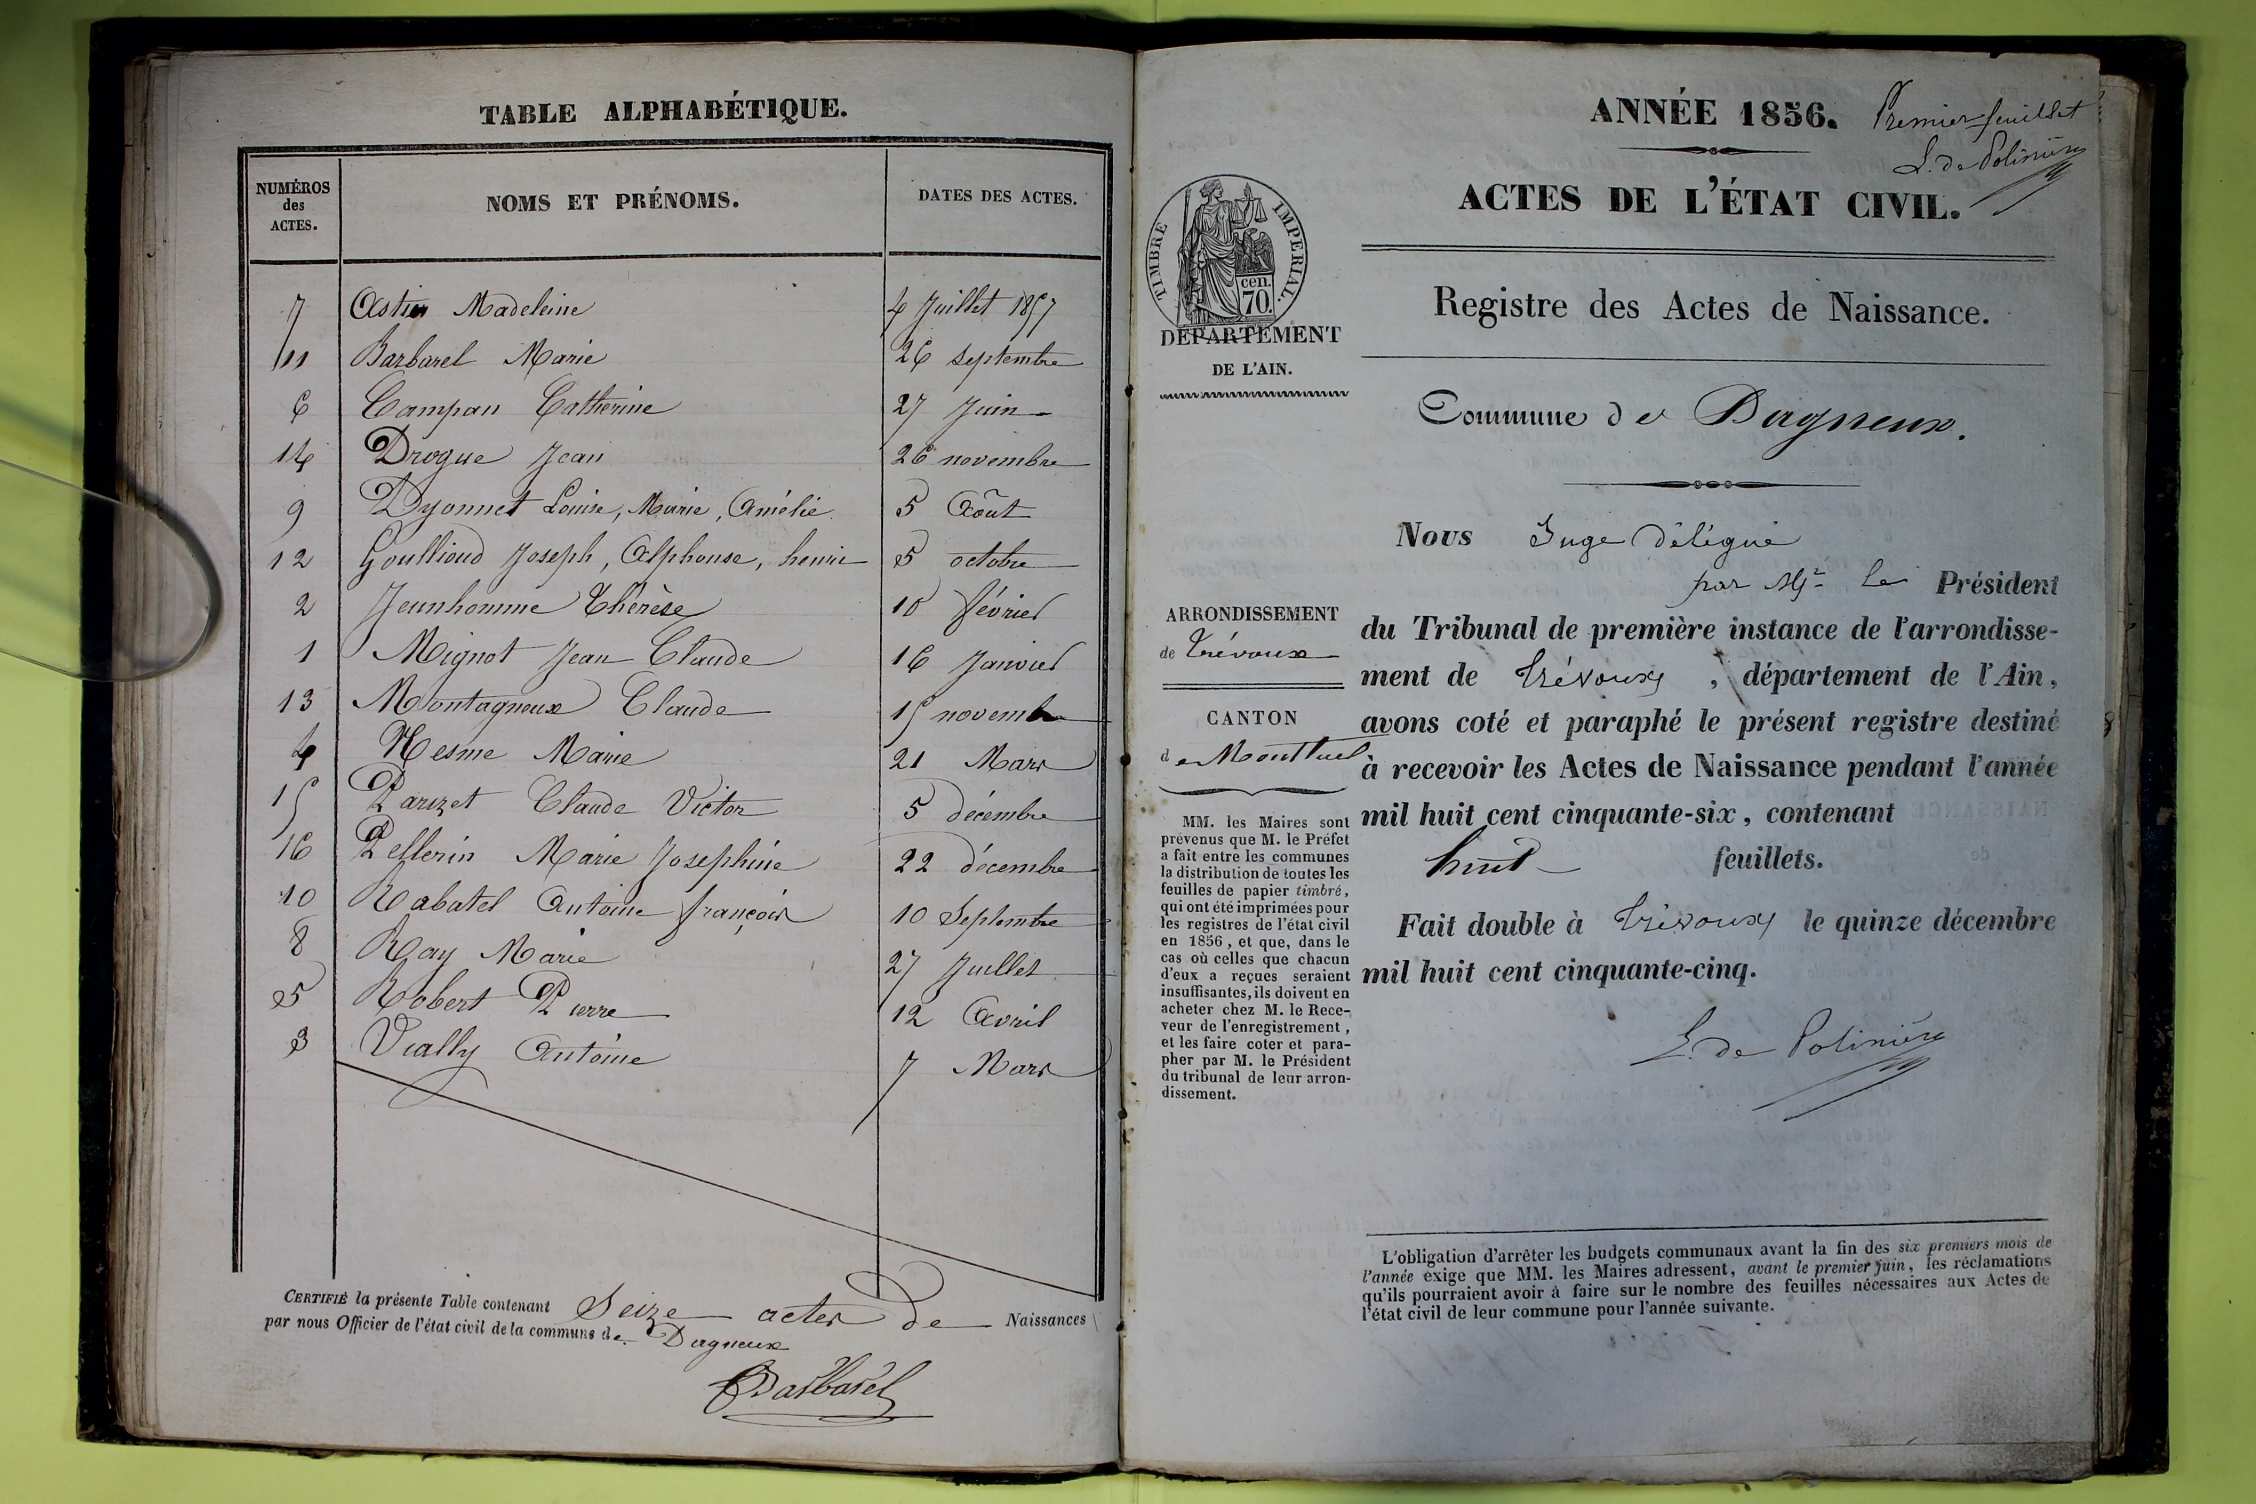 TABLE ALPHABÉTIQUE.
NUMÉROS des ACTES. NOMS ET PRÉNOMS. DATES DES ACTES.
7 Astier Madeleine 4 Juillet 1857
11 Barbarel Marie 26 septembre
6 Campan Catherine 27 Juin
14 Drogue Jean 26 novembre
9 Dyonnet Louise, Marie, Amélie 5 Août
12 Goullioud Joseph, Alphonse, henri 5 octobre
2 Jeunhomme Thérèse 10 février
1 Mignot Jean Claude 16 Janvier
13 Montagneux Claude 15 novembre
4 Nesme Marie 21 Mars
15 Parizet Claude Victor 5 décembre
16 Pellerin Marie Joséphine 22 décembre
10 Rabatel Antoine françois 10 Septembre
8 Ray Marie 27 Juillet
5 Robert Pierre 12 Avril
3 Vially Antoine 7 Mars
CERTIFIÉ la présente Table contenant Seize actes de Naissances
par nous Officier de l'état civil de la commune de Dagneux
Barbarel
ANNÉE 1856.
Premier feuillet
L. de Polinière
ACTES DE L'ÉTAT CIVIL.
TIMBRE IMPERIAL.
cen.
70.
DÉPARTEMENT
DE L'AIN.
Registre des Actes de Naissance.
Commune de Dagneux.
Nous Juge délégué
par Mr le Président
ARRONDISSEMENT
de Trévoux
CANTON
de Montluel
du Tribunal de première instance de l'arrondisse-
ment de Trévoux, département de l'Ain,
avons coté et paraphé le présent registre destiné
à recevoir les Actes de Naissance pendant l'année
mil huit cent cinquante-six, contenant
huit feuillets.
Fait double à Trévoux le quinze décembre
mil huit cent cinquante-cinq.
L. de Polinière
MM. les Maires sont
prévenus que M. le Préfet
a fait entre les communes
la distribution de toutes les
feuilles de papier timbré,
qui ont été imprimées pour
les registres de l'état civil
en 1856, et que, dans le
cas où celles que chacun
d'eux a reçues seraient
insuffisantes, ils doivent en
acheter chez M. le Rece-
veur de l'enregistrement,
et les faire coter et para-
pher par M. le Président
du tribunal de leur arron-
dissement.
L'obligation d'arrêter les budgets communaux avant la fin des six premiers mois de
l'année exige que MM. les Maires adressent, avant le premier juin, les réclamations
qu'ils pourraient avoir à faire sur le nombre des feuilles nécessaires aux Actes de
l'état civil de leur commune pour l'année suivante.